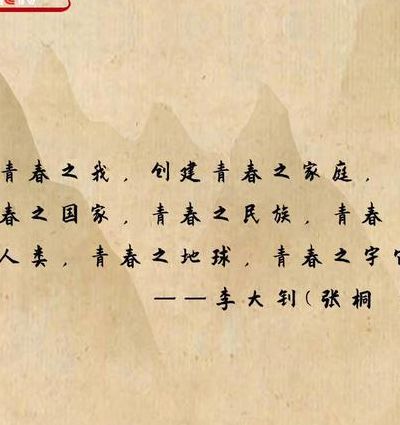 青春之我，创建青春之家庭，
春之国家，青春之民族，青春
人类，青春之地球，青春之宇
——李大钊（张桐